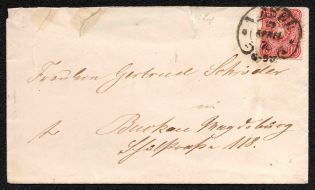 Fräulein Gertrud Schröder
in
Buckau Magdeburg
Schulstraße 118.